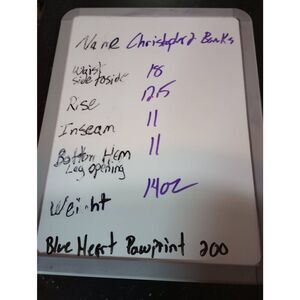 Name Christopher Banks
Waist side to side 18
Rise 12.5
Inseam 11
Bottom Hem 11
Leg opening
Weight 14oz
Blue Heart Pawprint 200